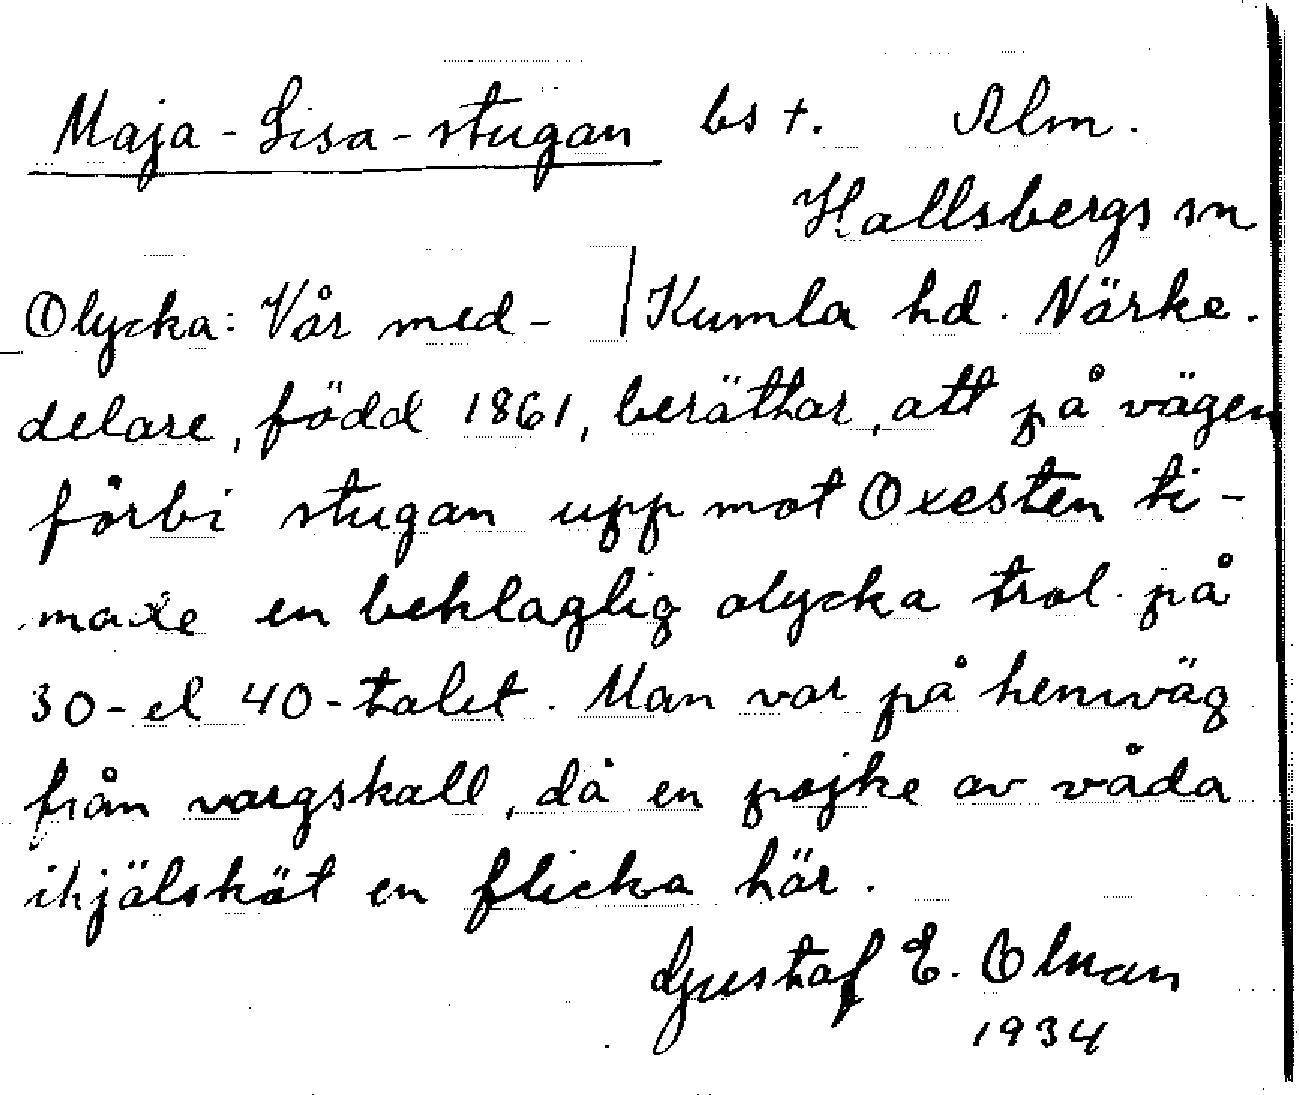 Maja-Lisa-stugan bs +. Alm.
Hallsbergs sn
Kumla hd. Närke.
Olycka: Vår med-
delare, född 1861, berättar, att på vägen
förbi stugan upp mot Oxesten ti-
made en beklaglig olycka trol. på
30- el 40-talet. Man var på hemväg
från vargskall, då en pojke av våda
ihjälsköt en flicka här.
Gustaf E. Olman
1934